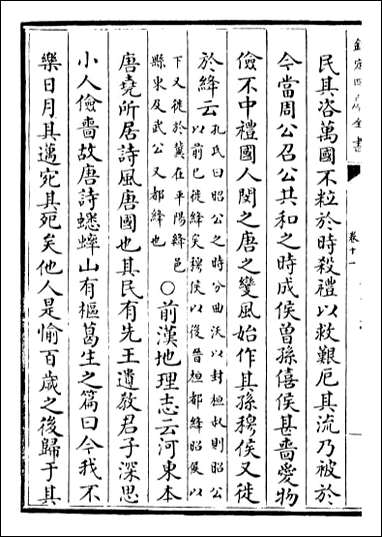 欽定四庫全書
卷十一
民其咨萬國不粒於時殺禮以救艱厄其流乃被於
今當周公召公共和之時成侯曽孫僖侯甚嗇愛物
儉不中禮國人閔之唐之變風始作其孫穆侯又徙
於絳云孔氏曰昭公之時分曲沃以封桓叔則昭公
以前已徙絳矣穆侯以後晉桓都絳昭侯以
下又徙於冀在平陽絳邑
縣東及武公又都絳也○前漢地理志云河東本
唐堯所居詩風唐國也其民有先王遺教君子深思
小人儉嗇故唐詩蟋蟀山有樞葛生之篇曰今我不
樂日月其邁宛其死矣他人是愉百歲之後歸于其